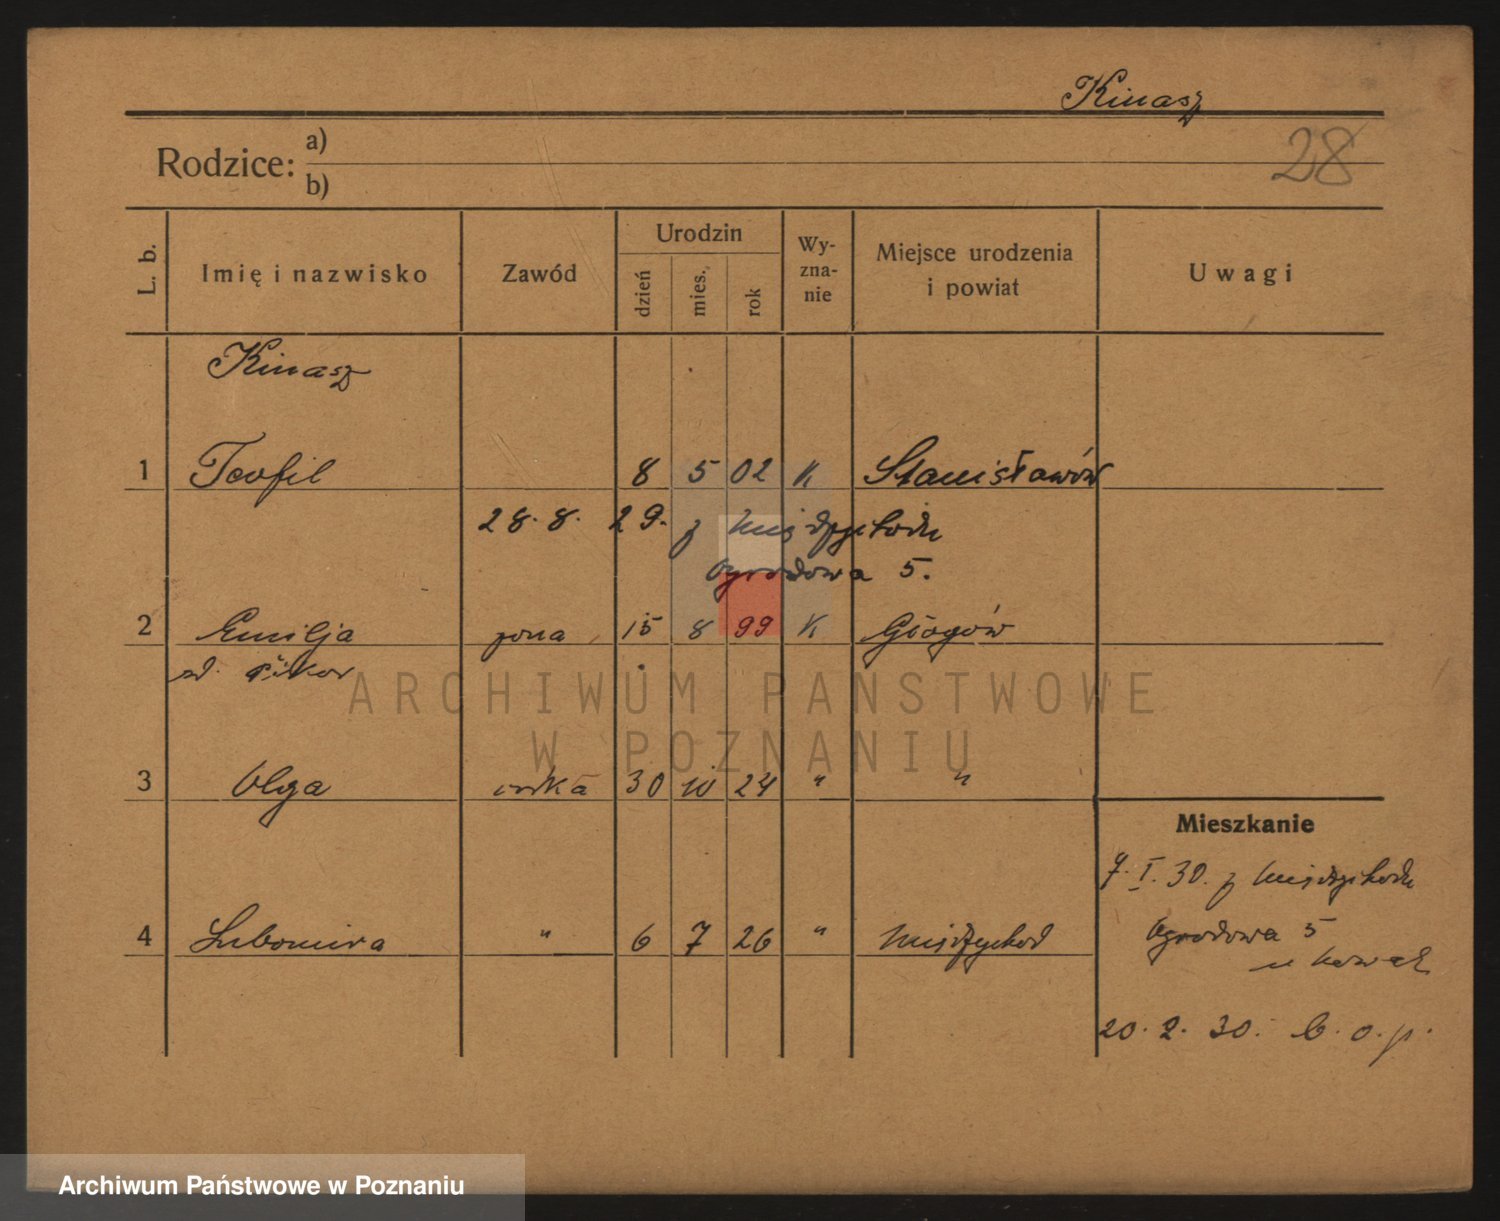 Kinasz
28
Rodzice: a)
b)
L. b. Imię i nazwisko Zawód Urodzin dzień mies. rok Wy-zna-nie Miejsce urodzenia i powiat Uwagi
Kinasz
1 Teofil 8 5 02 K Stanisławów
28. 8. 29. z Międzychodu
Ogrodowa 5.
2 Emilja żona 15 8 99 K Głogów
ARCHIWUM PAŃSTWOWE
W POZNANIU
3 Olga córka 30 10 24 " "
Mieszkanie
7. I. 30. z Międzychodu
4 Lubomira " 6 7 26 " Międzychod
Ogrodowa 5
20. 2. 30. b. o. p.
Archiwum Państwowe w Poznaniu